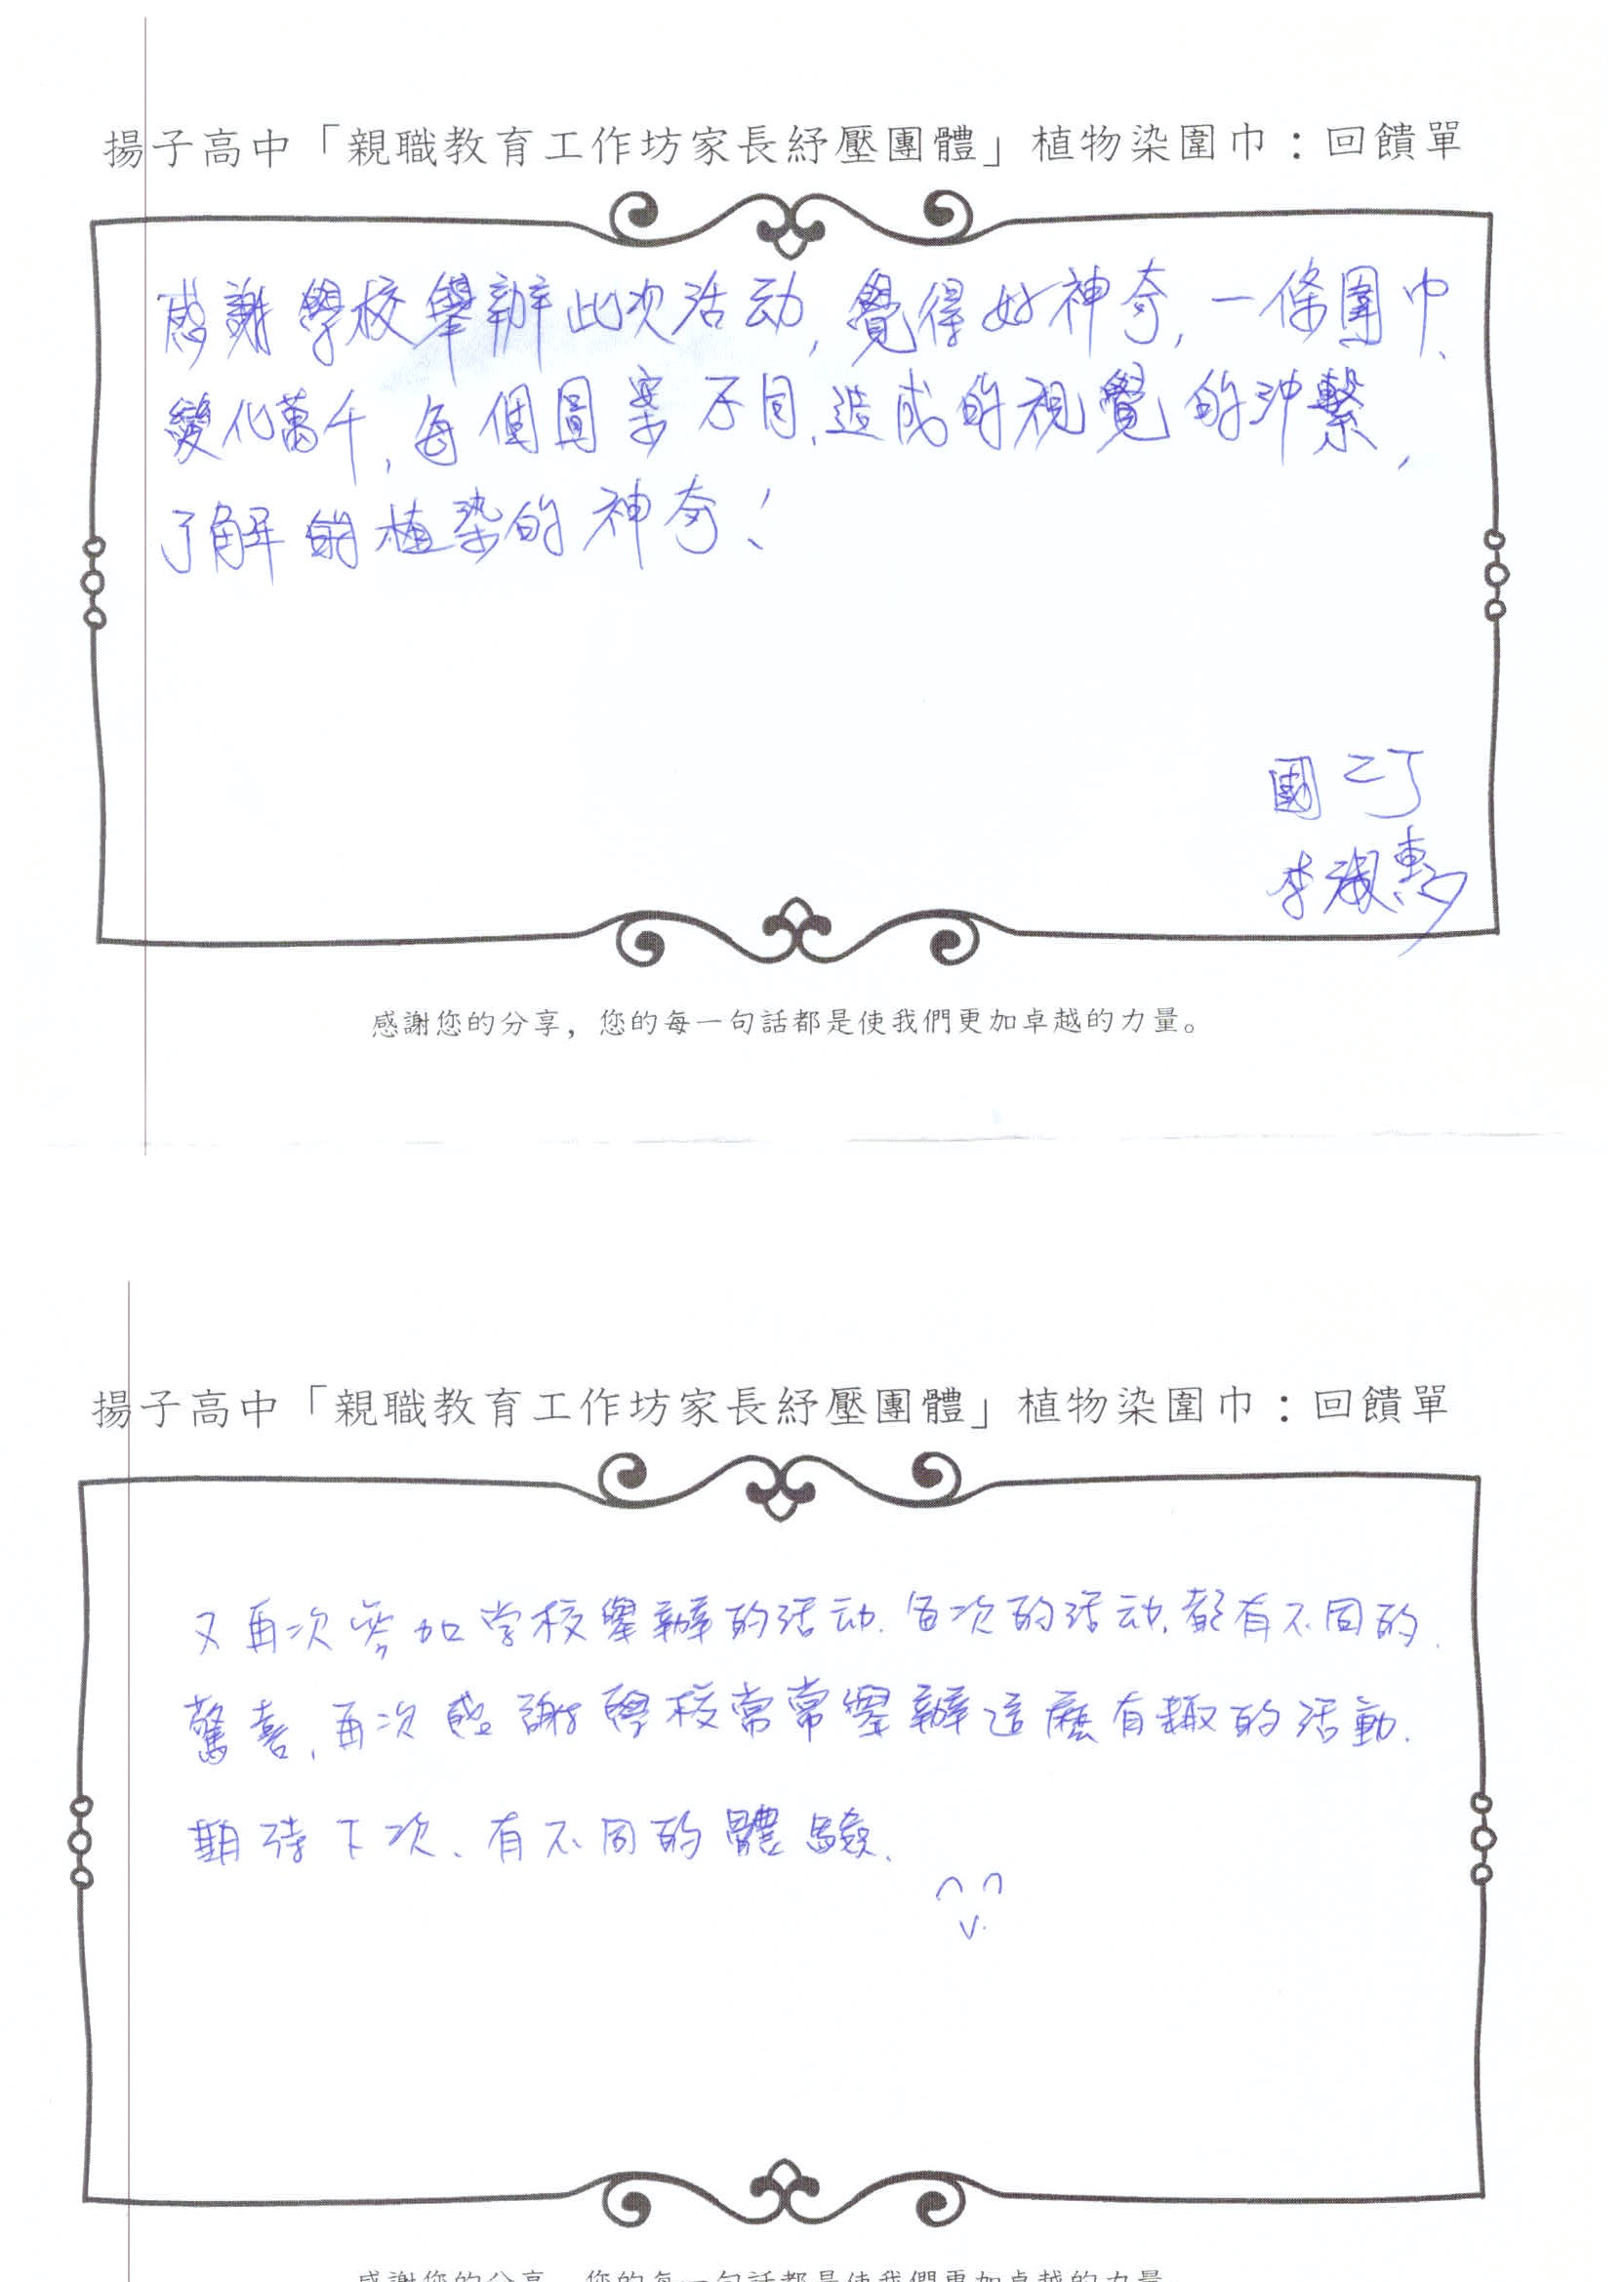 揚子高中「親職教育工作坊家長紓壓團體」植物染圍巾：回饋單
感謝學校舉辦此次活动, 覺得好神奇, 一條圍巾、
變化萬千, 每個圖案不同, 造成的視覺的沖繫,
了解的植染的神奇！
國二丁
李淑惠
感謝您的分享，您的每一句話都是使我們更加卓越的力量。
揚子高中「親職教育工作坊家長紓壓團體」植物染圍巾：回饋單
又再次參加学校舉辦的活动. 每次的活动, 都有不同的.
驚喜, 再次感謝學校常常舉辦這麼有趣的活動.
期待下次、有不同的體驗.
感謝您的分享，您的每一句話都是使我們更加卓越的力量